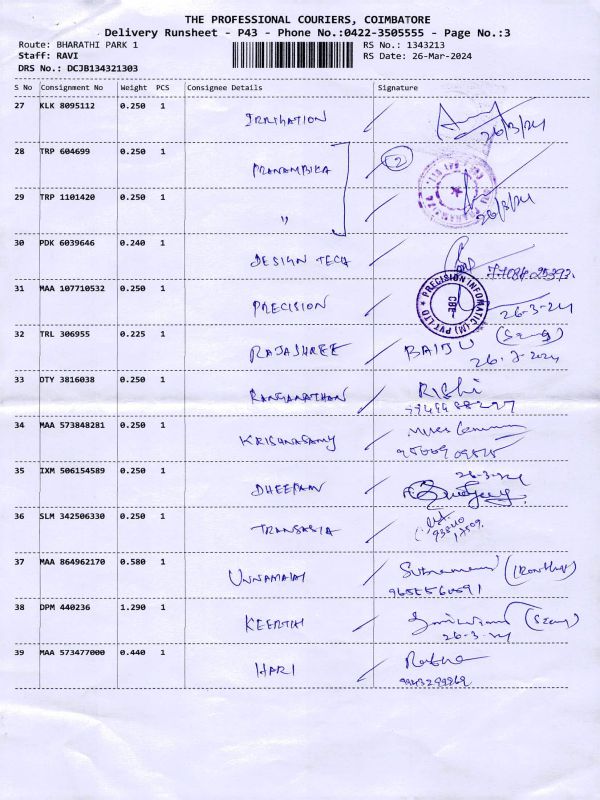 THE PROFESSIONAL COURIERS, COIMBATORE
Delivery Runsheet - P43 - Phone No.:0422-3505555 - Page No.:3
Route: BHARATHI PARK 1 RS No.: 1343213
Staff: RAVI RS Date: 26-Mar-2024
DRS No.: DCJB134321303
S No Consignment No Weight PCS Consignee Details Signature
27 KLK 8095112 0.250 1 IRRIGATION
26/3/24
28 TRP 604699 0.250 1 PRANAMBIKA 2
29 TRP 1101420 0.250 1 "
26/3/24
30 PDK 6039646 0.240 1 DESIGN TECH
31 MAA 107710532 0.250 1 PRECISION
PRECISION INFOMATIC (M) PVT LTD CBE
26-3-24
32 TRL 306955 0.225 1 RAJASHREE BAIJU
33 DTY 3816038 0.250 1 RANGANATHAN RISHI
34 MAA 573848281 0.250 1 KRISHNASAMY
35 IXM 506154589 0.250 1 DHEEPAM 26-3-24
36 SLM 342506330 0.250 1 TRANSASIA
37 MAA 864962170 0.580 1 UNNAMALAI
38 DPM 440236 1.290 1 KEERTHI
26-3-24
39 MAA 573477000 0.440 1 HARI